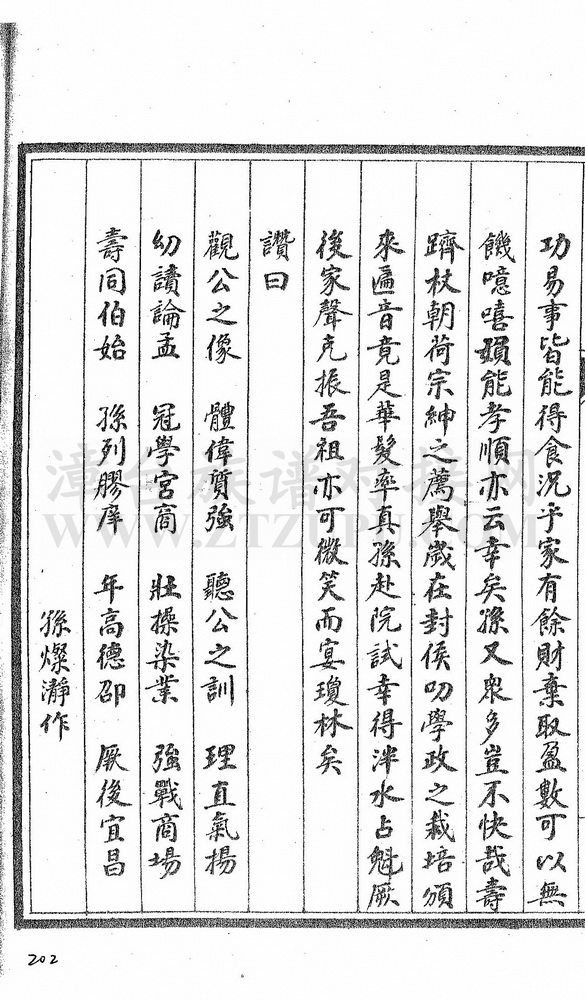 功易事皆能得食況乎家有餘財棄取盈數可以無
饑噫嘻頊能孝順亦云幸矣孫又眾多豈不快哉壽
躋杖朝荷宗紳之薦舉歲在封侯叨學政之栽培頒
來匾音竟是華髮率真孫赴院試幸得泮水占魁厥
後家聲克振吾祖亦可微笑而宴瓊林矣
讚曰
觀公之像 體偉質強 聽公之訓 理直氣揚
幼讀論孟 冠學宮商 壯操染業 強戰商場
壽同伯始 孫列膠庠 年高德邵 厥後宜昌
孫燦瀞作
漳台族谱对接网
WWW.ZTZUPU.COM
202